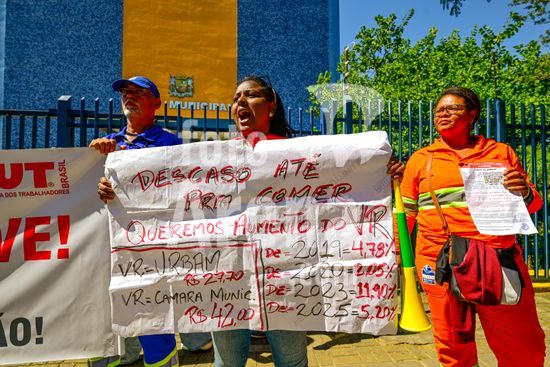 MUNICIPAL
UT
BRASIL
DOS TRABALHADORES
VE!
ÃO!
DESCASO ATÉ
PRA COMER
QUEREMOS AUMENTO DO VR
VR = URBAM
R$ 27,70
VR = CAMARA MUNIC.
R$ 42,00
DE = 2019 = 4,78%
DE = 2020 = 2,05%
DE = 2023 = 11,90%
DE = 2025 = 5,20%